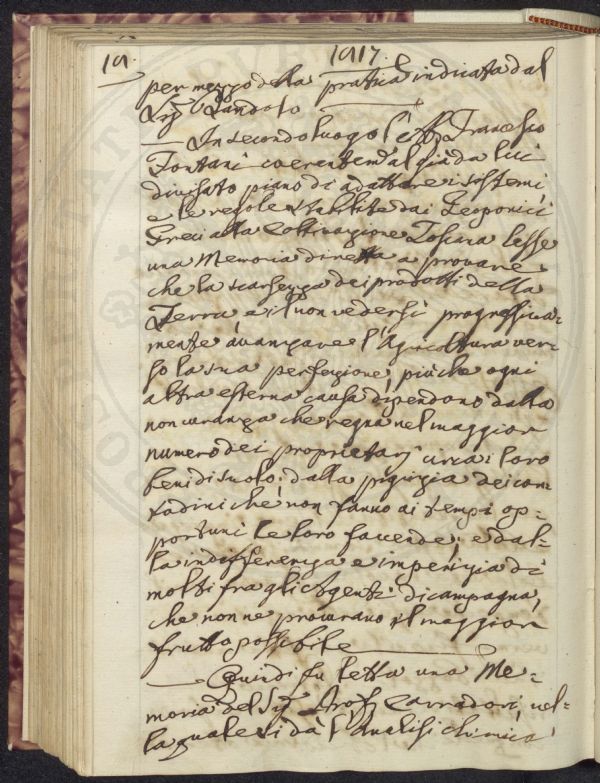 19. 1917.
per mezzo della pratica indicata dal
Sig.r Landolo
In secondo luogo l'Ab. Francesco
Fontani coerentem.e al già da lui
divisato piano di adattare i sistemi,
e le regole stabilite dai Geoponici
Greci alla Coltivazione Toscana lesse
una Memoria diretta a provare
che la scarsezza dei prodotti della
Terra e il non vedersi progressiva=
mente avanzare l'Agricoltura ver=
so la sua perfezione, più che ogni
altra esterna causa dipendono dalla
non curanza che regna nel maggior
numero dei proprietarj circa i loro
beni di suolo, dalla pigrizia dei con=
tadini che non fanno ai tempi op=
portuni le loro faccende; e dal=
la indifferenza e imperizia di
molti fra gli Agenti di campagna,
che non ne procurano il maggior
frutto possibile
Quindi fu letta una Me=
moria del Sig.r Prof. Carradori, nel=
la quale si dà l'Analisi chimica